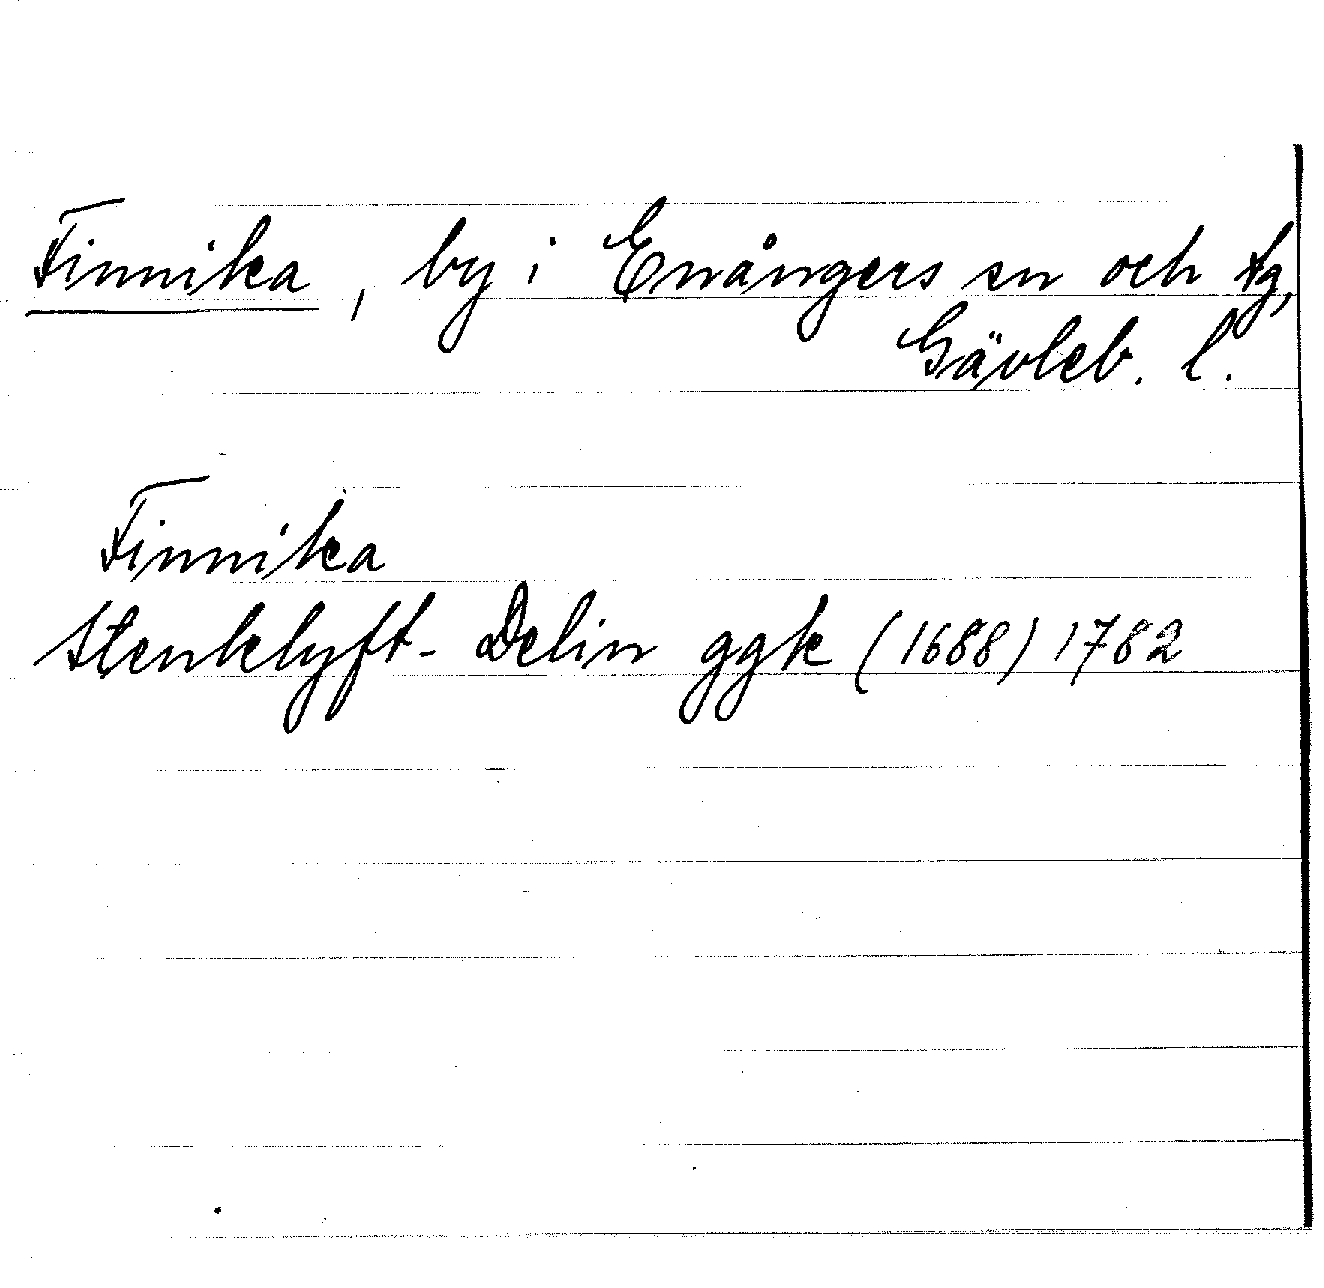 Finnika, by i Enångers sn och tg,
Gävleb. l.
Finnika
Stenklyft- Delin ggk (1688) 1782